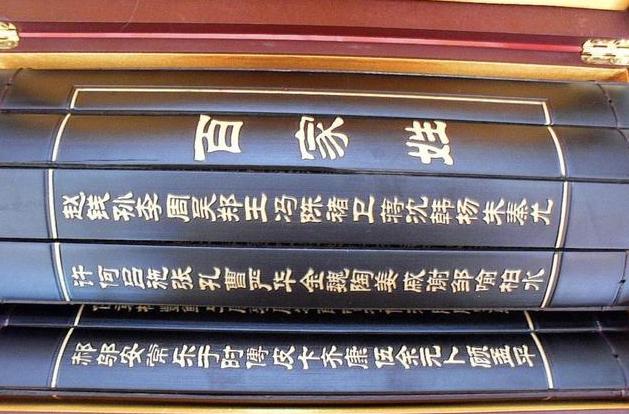 百家姓
赵钱孙李周吴郑王冯陈褚卫蒋沈韩杨朱秦尤
许何吕施张孔曹严华金魏陶姜戚谢邹喻柏水
郝邬安常乐于时傅皮卞齐康伍余元卜顾孟平